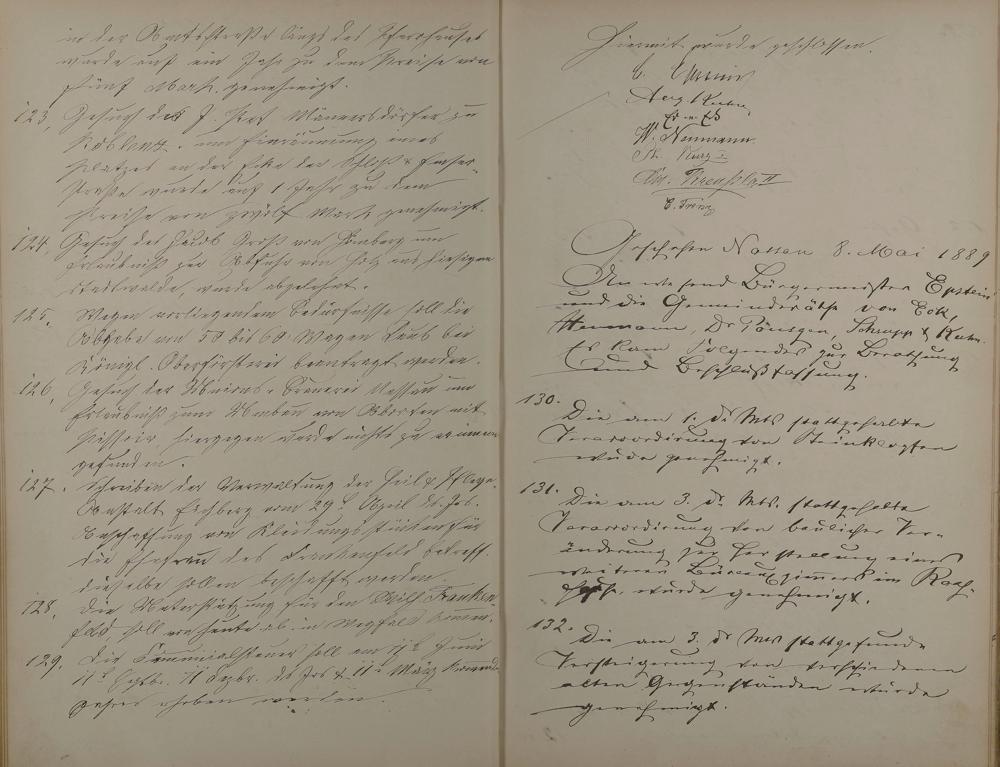 in der Amtsstraße längs des Pfarrhauses
wurde auf ein Jahr zu dem Preise von
fünf Mark genehmigt.
123, Gesuch des J. Männersdörfer zu
Koblenz, um Einräumung eines
Platzes an der Ecke der Schloß & Emser-
straße wurde auf 1 Jahr zu dem
Preise von zwölf Mark genehmigt.
124, Gesuch des Jacob Groß von Homberg um
Erlaubniß zur Abfuhr von Holz aus hiesigem
Stadtwalde, wurde abgelehnt.
125, Wegen vorliegendem Bedürfnisse soll die
Abgabe von 50 bis 60 Wagen Laub bei
Königl. Oberförsterei beantragt werden.
126, Gesuch der Unions-Brauerei Nassau um
Erlaubniß zum Umbau von Aborten mit
Pissoir, hiergegen wurde nichts zu erinnern
gefunden.
127, Schreiben der Verwaltung der Heil & Pflege-
Anstalt Eichberg vom 29t April ds. Jrs.
Beschaffung von Kleidungsstücken für
die Ehefrau des Frankenfeld betreff.
dieselbe sollen beschafft werden.
128, Die Unterstützung für den Wilh. Franken-
feld soll von heute ab in Wegfall kommen.
129, Die Communalsteuer soll am Juni
11t Septbr. 11 Dezbr. ds Jrs & 11t März
Jahres erhoben werden.
Hiermit wurde geschlossen.
E. Epstein
Aug. Kuhn
W. Neumann
Kurz
C. Trinz
Geschehen Nassau 8. Mai 1889
Anwesend Bürgermeister Epstein
und die Gemeinderäthe von Eck,
Heumann, Dr Pönsgen, Schrupp & Kuhn.
Es kam folgendes zur Berathung
und Beschlußfassung.
130. Die am 1. ds Mts stattgehabte
Veraccordirung von Steinklopfen
wurde genehmigt.
131. Die am 3. ds. Mts. stattgehabte
Veraccordirung von baulicher Ver-
änderung zur Herstellung eines
weiteren Büreauzimmers im Rath-
hause, wurde genehmigt.
132. Die am 3. ds Mts stattgefundene
Versteigerung von verschiedenen
alten Gegenständen wurde
genehmigt.